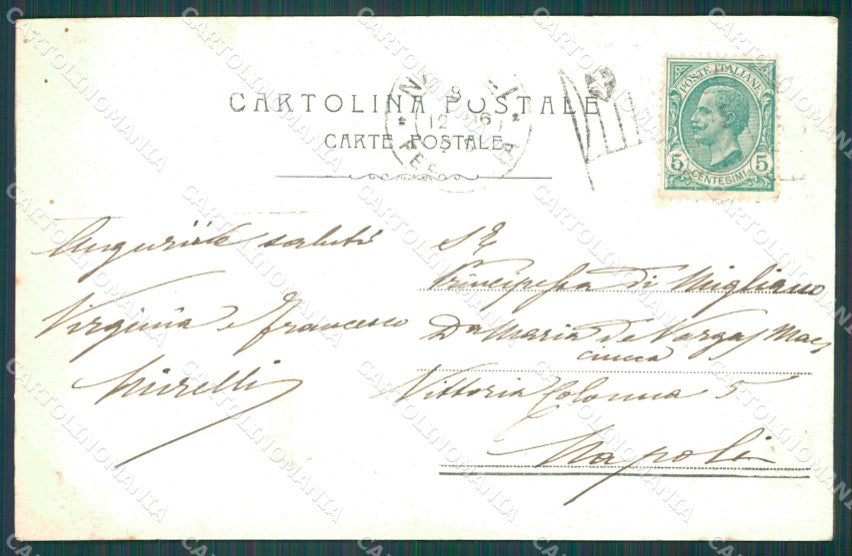 CARTOLINA POSTALE
CARTE POSTALE
POSTE ITALIANE
5 5
CENTESIMI
12 06
Auguri e saluti
Virginia e Francesco
Mirelli
S E
Principessa di Migliano
Da Maria de Vargas Mac
ciucca
Vittoria Colonna 5
Napoli
CARTOLINOMANIA